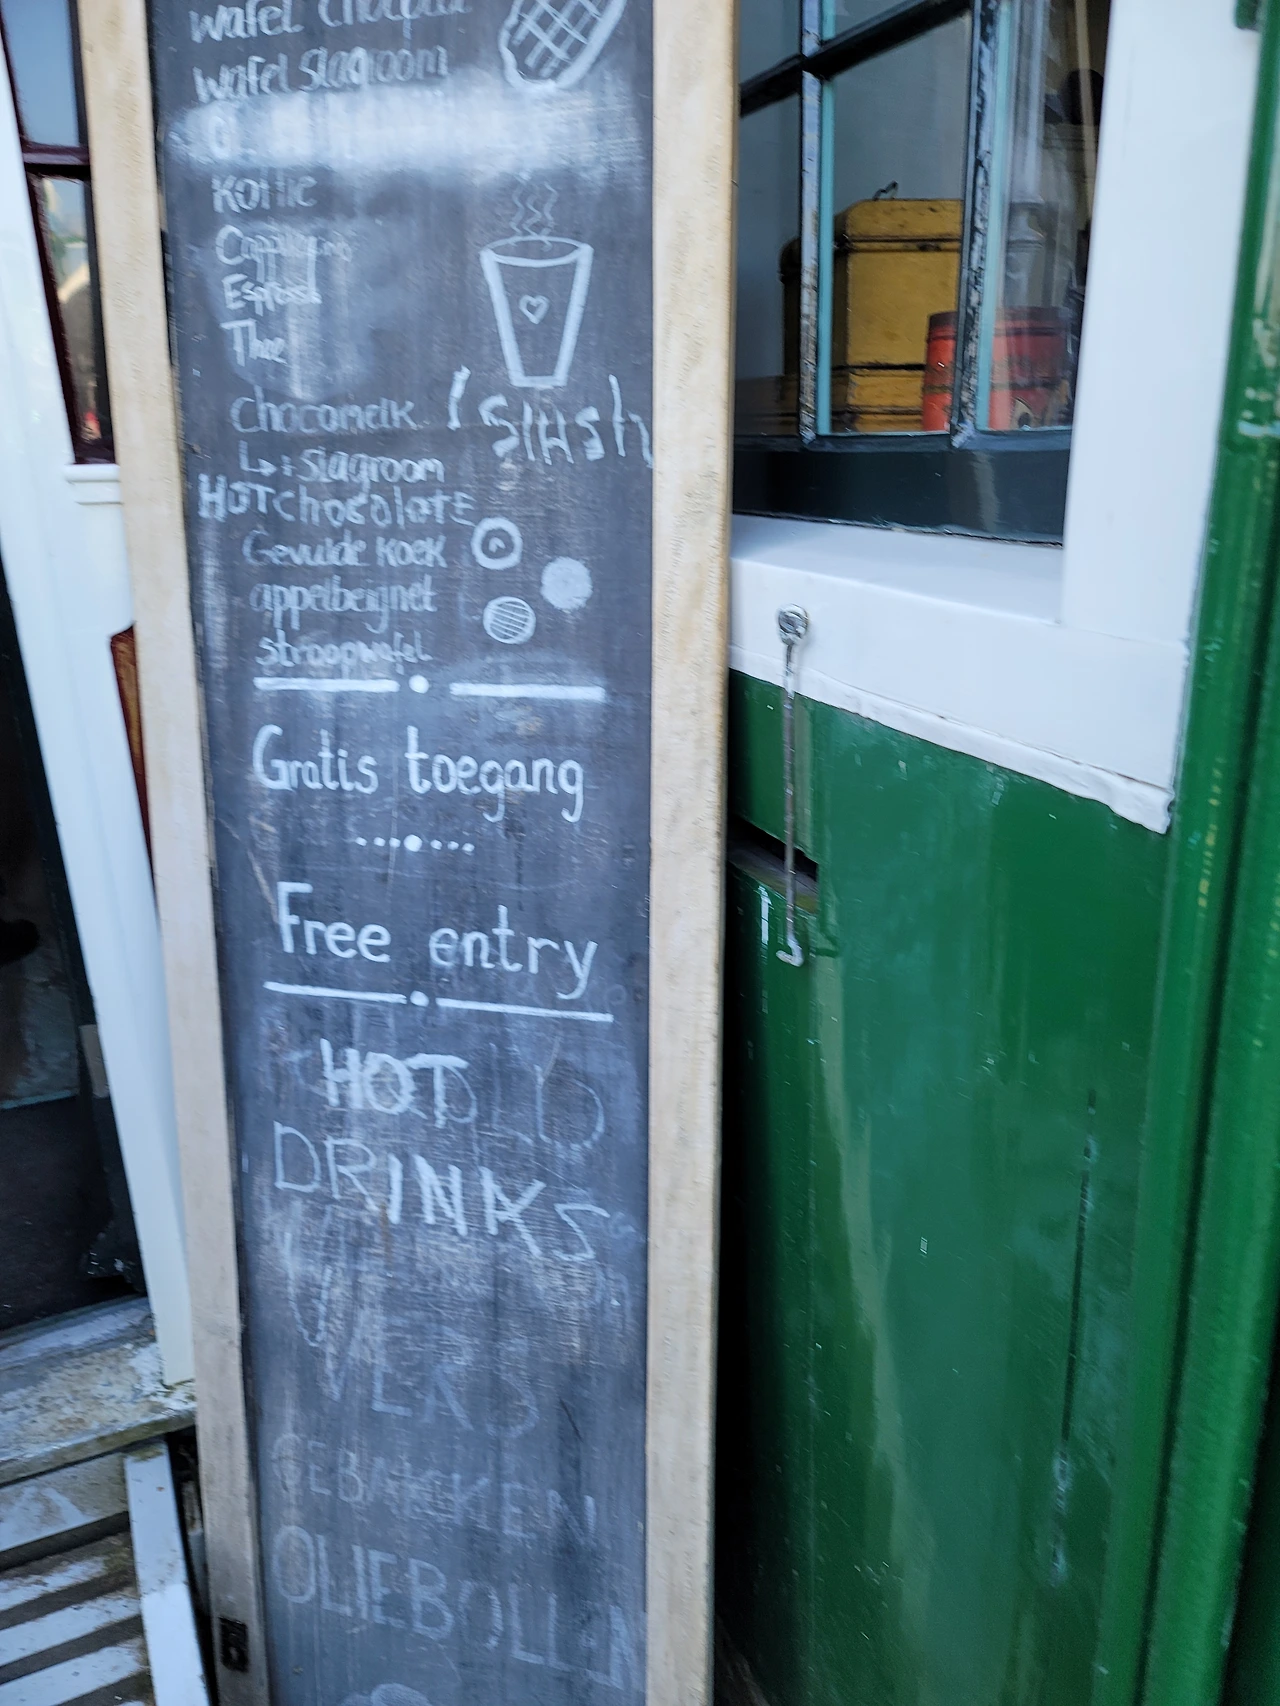 wafel
wafel slagroom
Koffie
Cappuccino
Espresso
Thee
chocomelk
Slush
↳ + slagroom
HOT chocolate
Gevulde koek
appelbeignet
stroopwafel
Gratis toegang
Free entry
HOT
DRINKS
VERS
GEBAKKEN
OLIEBOLLEN